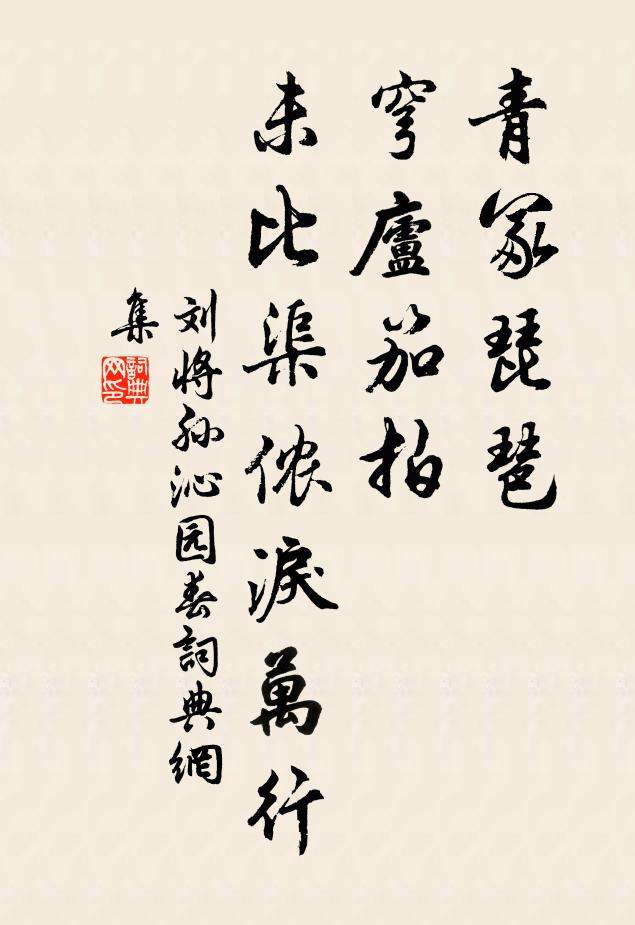 青冢琵琶
穹廬笳拍
未比渠侬淚萬行
刘將孙沁园春詞典網
集
詞典网印